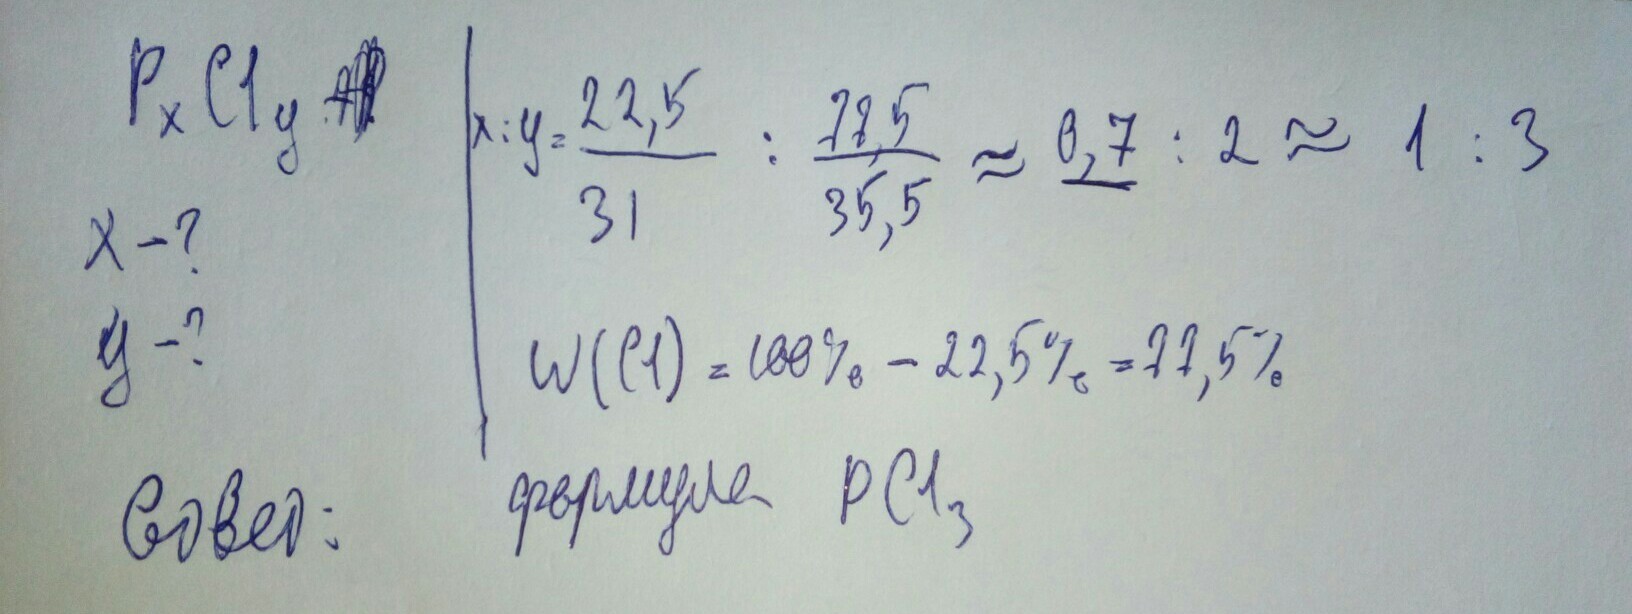 PxCly
x:y = 22,5/31 : 77,5/35,5 ≈ 0,7 : 2 ≈ 1 : 3
x - ?
y - ?
W(Cl) = 100% - 22,5% = 77,5%
Ответ: формула PCl3